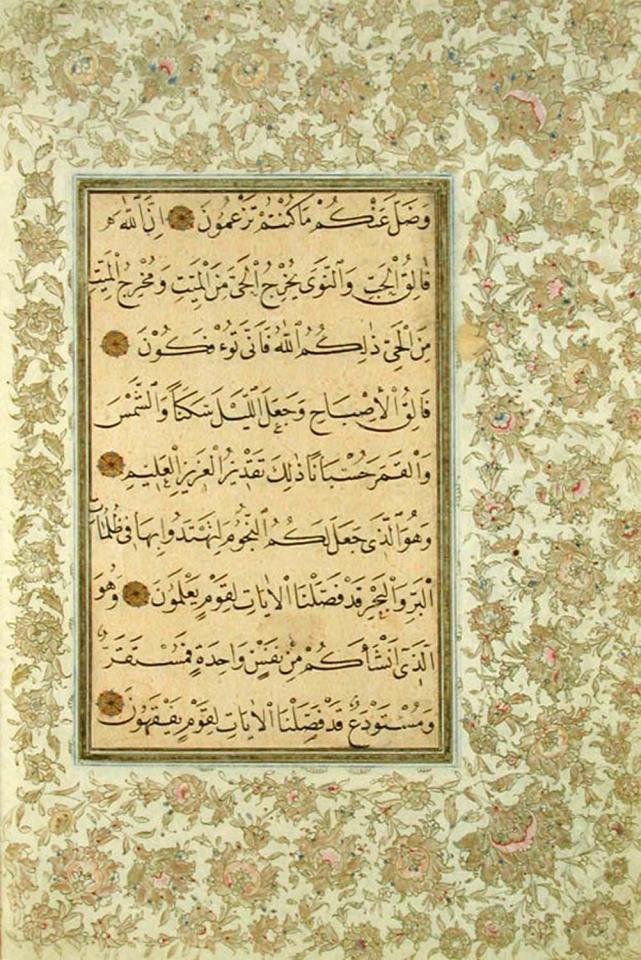 وَضَلَّ عَنْكُمْ مَا كُنْتُمْ تَزْعُمُونَ اِنَّ اللّٰهَ
فَالِقُ الْحَبِّ وَالنَّوَى يُخْرِجُ الْحَيَّ مِنَ الْمَيِّتِ وَمُخْرِجُ الْمَيِّتِ
مِنَ الْحَيِّ ذٰلِكُمُ اللّٰهُ فَاَنّٰى تُؤْفَكُونَ
فَالِقُ الْاِصْبَاحِ وَجَعَلَ اللَّيْلَ سَكَنًا وَالشَّمْسَ
وَالْقَمَرَ حُسْبَانًا ذٰلِكَ تَقْدِيرُ الْعَزِيزِ الْعَلِيمِ
وَهُوَ الَّذِى جَعَلَ لَكُمُ النُّجُومَ لِتَهْتَدُوا بِهَا فِى ظُلُمَاتِ
الْبَرِّ وَالْبَحْرِ قَدْ فَصَّلْنَا الْاٰيَاتِ لِقَوْمٍ يَعْلَمُونَ وَهُوَ
الَّذِى اَنْشَاَكُمْ مِنْ نَفْسٍ وَاحِدَةٍ فَمُسْتَقَرٌّ
وَمُسْتَوْدَعٌ قَدْ فَصَّلْنَا الْاٰيَاتِ لِقَوْمٍ يَفْقَهُونَ